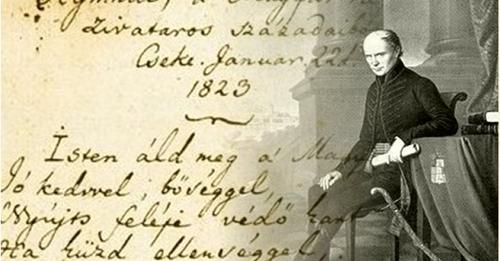 Hymnus, a' Magyar n
zivataros századaiból
Cseke. Januar. 22d.
1823
Isten áld meg a' Magy
Jó kedvvel, bőséggel,
Nyújts feléje védő kart
Ha küzd ellenséggel